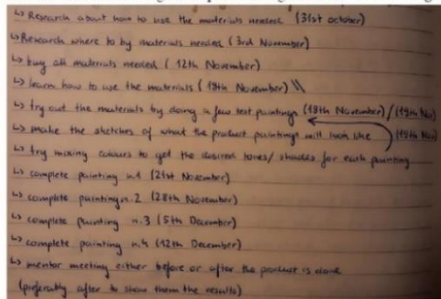 ↳ Research about how to use the materials needed (31st october)
↳ Research where to by materials needed (3rd November)
↳ buy all materials needed (12th November)
↳ learn how to use the materials (18th November) \\
↳ try out the materials by doing a few test paintings (18th November)/(19th Nov)
↳ make the sketches of what the product paintings will look like (19th Nov)
↳ try mixing colours to get the desired tones/ shades for each painting
↳ complete painting n.1 (21st November)
↳ complete painting n.2 (28th November)
↳ complete painting n.3 (5th December)
↳ complete painting n.4 (12th December)
↳ mentor meeting either before or after the product is done
(preferably after to show them the results)